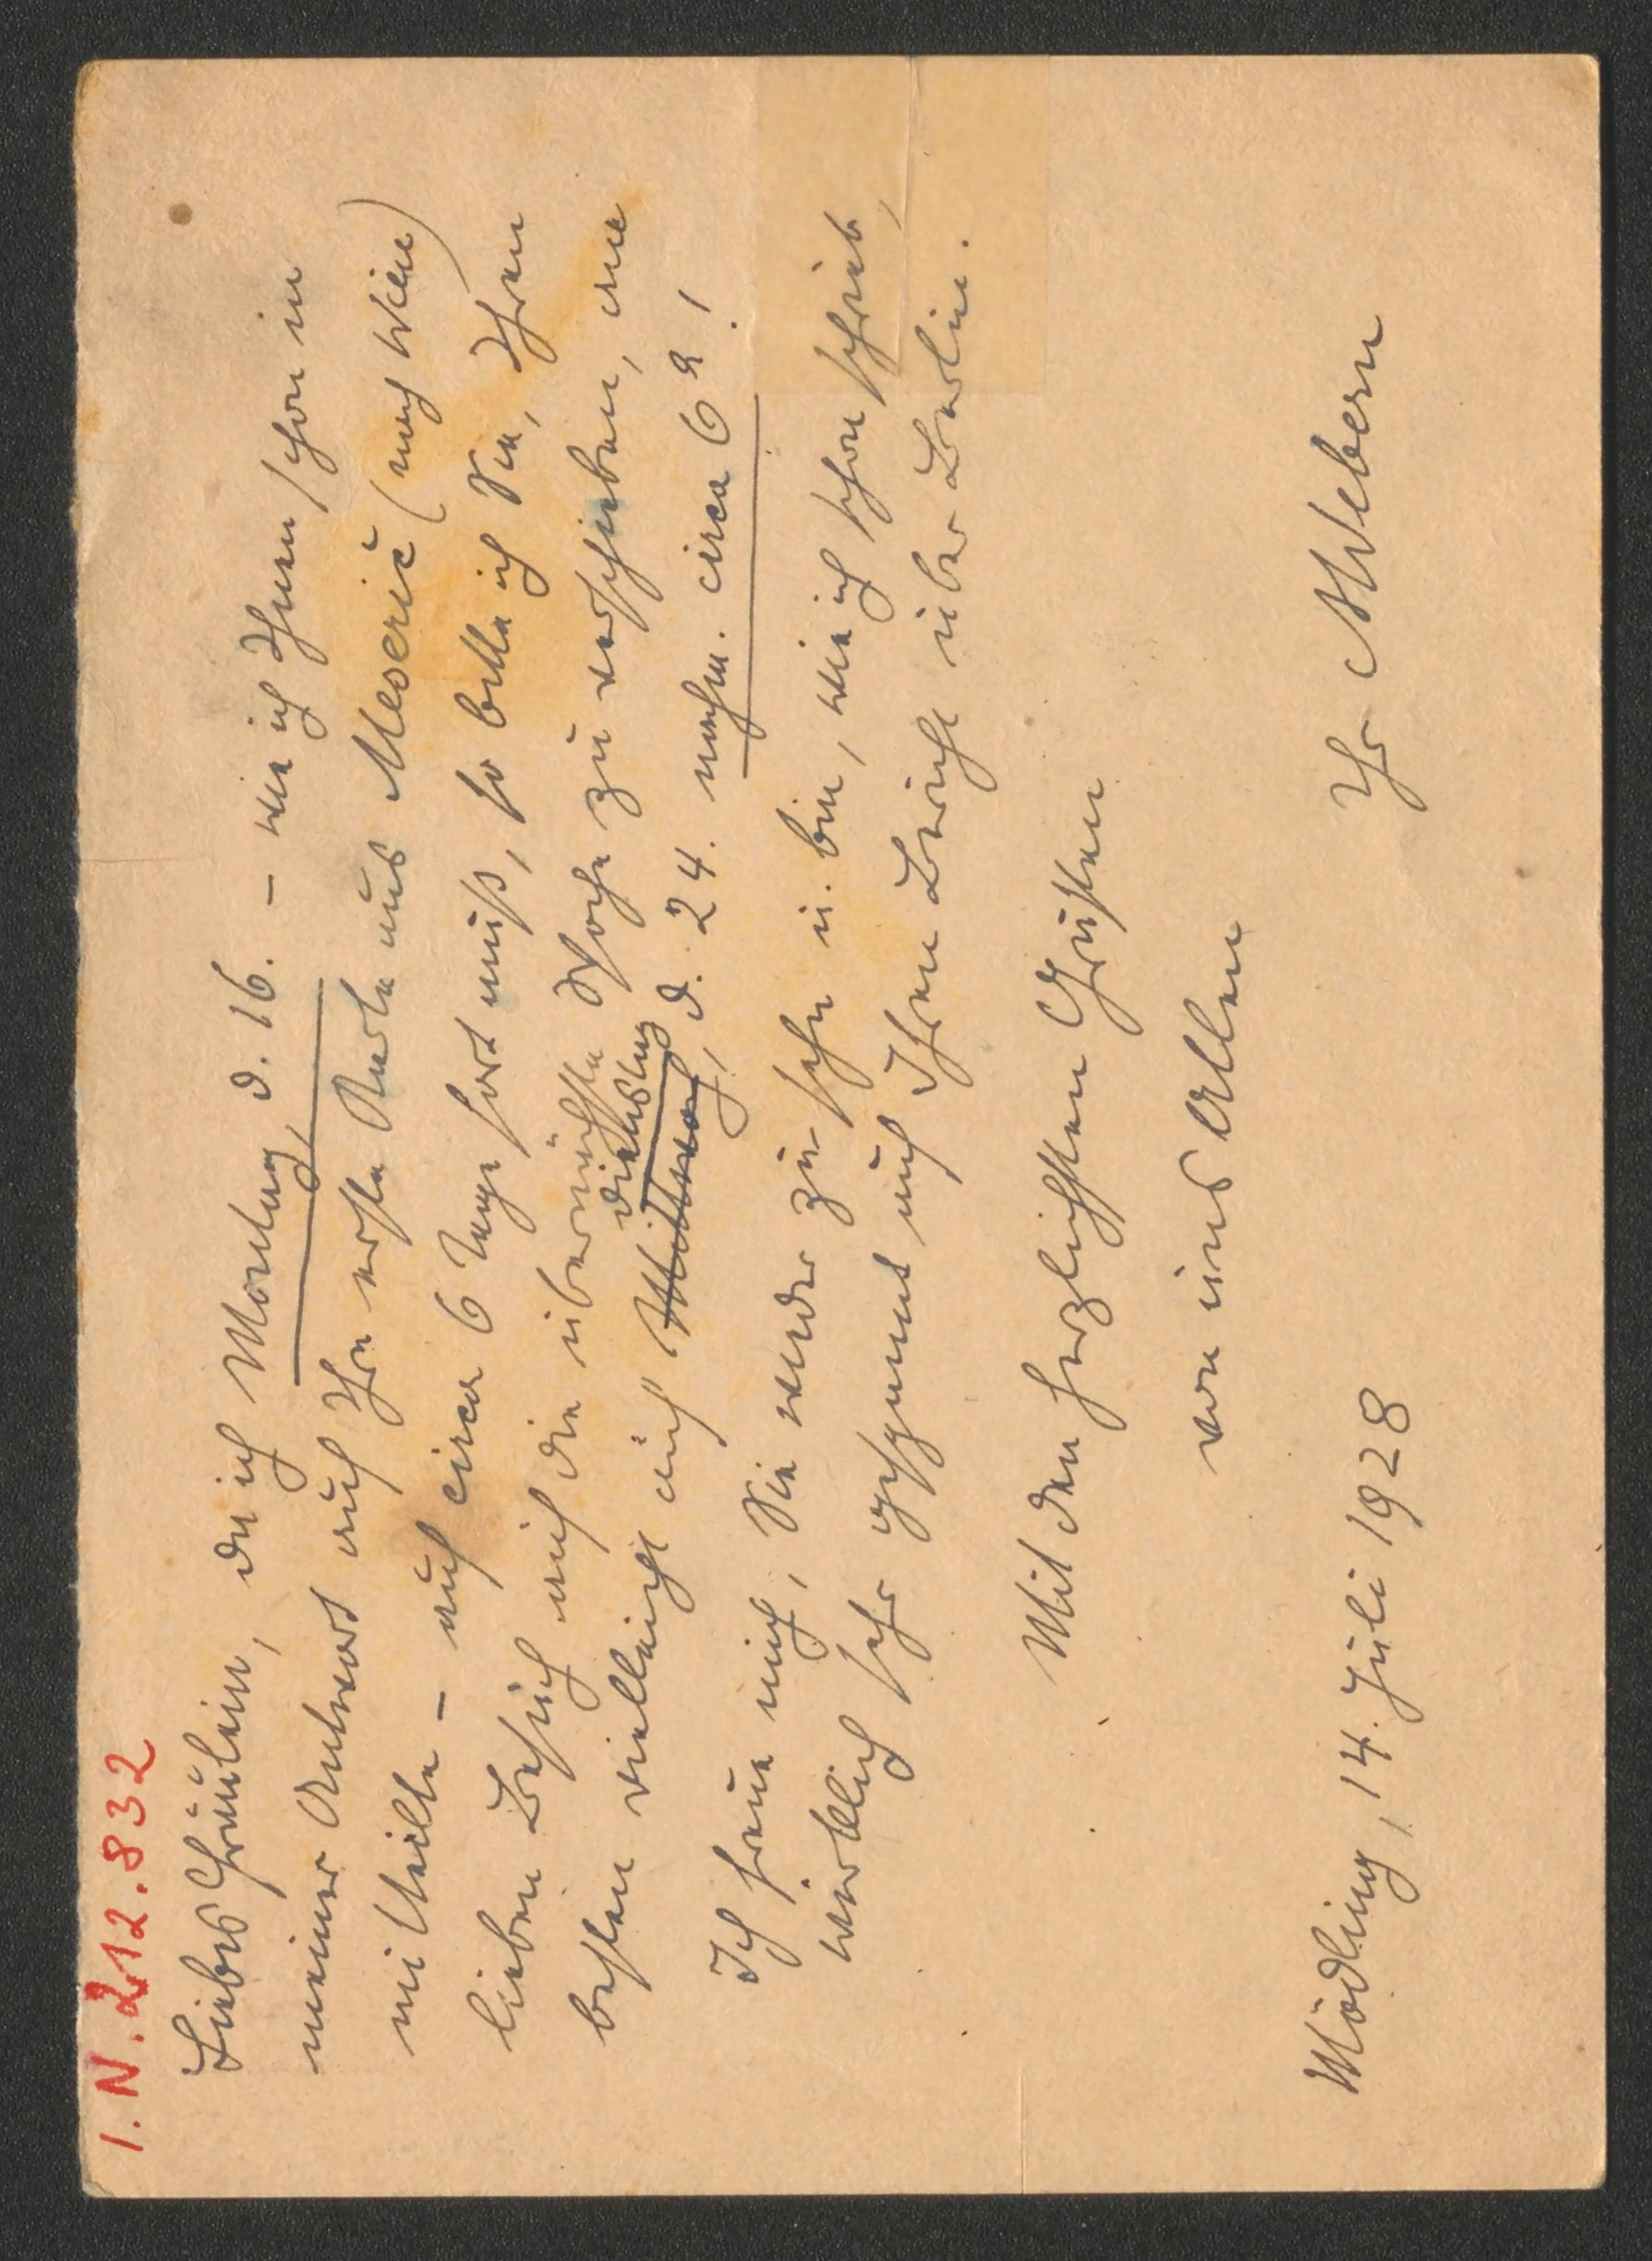 I. N. 212.832
Liebes Fräulein, da ich Montag, d. 16. – wie ich Ihnen schon in
meiner Antwort auf Ihre erste Karte aus Meseric (nach Wien)
mitteilte – auf circa 6 Tage fort muß, so bitte ich Sie, Ihren
lieben Besuch auf die übernächste Woche zu verschieben, am
Dienstag
besten vielleicht auf Mittwoch, d. 24. nachm. circa 6ʰ!
Ich freue mich, Sie wieder zu sehn u. bin, wie ich schon schrieb,
wirklich sehr gespannt auf Ihren Bericht über Berlin.
Mit den herzlichsten Grüßen
von uns Allen
Ihr AWebern
Mödling, 14. Juli 1928